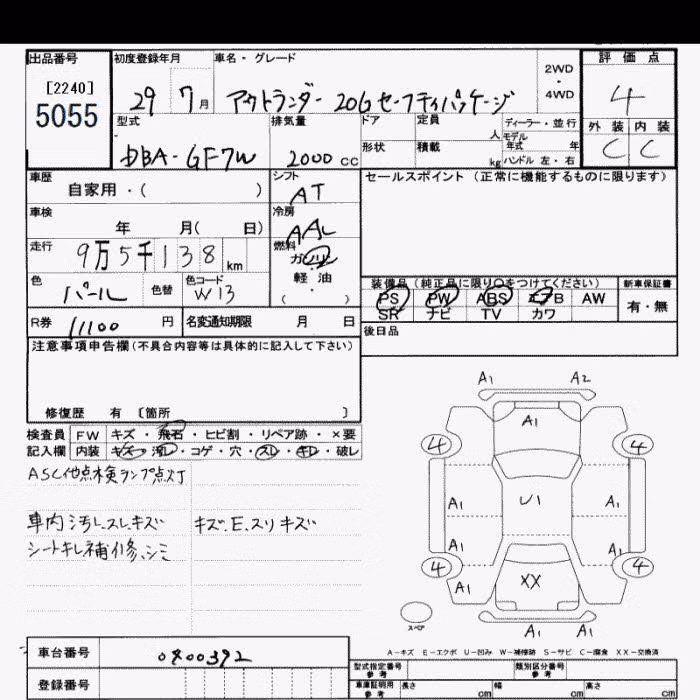 出品番号 初度登録年月 車名・グレード 評価点
[2240]
5055
29 7月 アウトランダー 20Gセーフティパッケージ
2WD
・
4WD
4
型式 排気量 ドア 定員 人 ディーラー・並行 外装 内装
モデル年式 年
DBA-GF7W 2000cc
形状 積載 kg ハンドル 左・右
C C
車歴 シフト セールスポイント(正常に機能するものに限ります)
自家用・( ) AT
車検 冷房
年 月( 日) AAC
走行 燃料
9万5千138km ガソリン
・
軽油
( )
色 色替 色コード
パール W13
装備品(純正品に限り○をつけてください) 新車保証書
PS PW ABS エアB AW 有・無
SR ナビ TV カワ
R券 11100円 名変通知期限 月 日
後日品
注意事項申告欄(不具合内容等は具体的に記入して下さい)
修復歴 有〔箇所 〕
検査員 FW キズ・飛石・ヒビ割・リペア跡・×要
記入欄 内装 キズ・汚レ・コゲ・穴・スレ・キレ・破レ
ASC他点検ランプ点灯
車内汚レ、スレ、キズ
キズ、E、スリキズ
シートキレ補修、シミ
A1 A2
A1
4 4
A1 U1 A1
A1 A1
4 4
A1 XX
スペア
A1 A1
A-キズ E-エクボ U-凹み W-補修跡 S-サビ C-腐食 XX-交換済
車台番号 0400392
登録番号
型式指定番号 参考 類別区分番号 参考
車庫証明用 参考 長さ cm 幅 cm 高さ cm